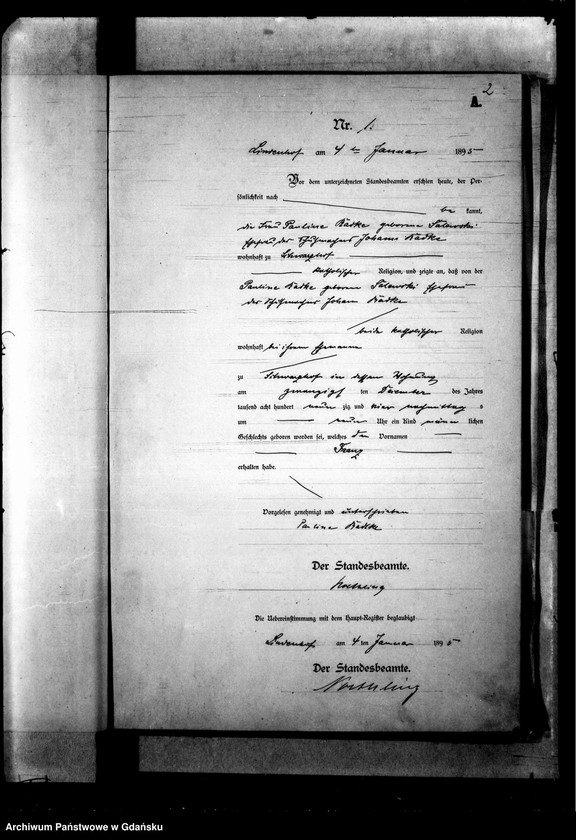 2
A.
Nr. 1.
Lindenhof am 4ten Januar 1895
Vor dem unterzeichneten Standesbeamten erschien heute, der Per-
sönlichkeit nach
be kannt,
die Frau Pauline Radtke geborene
Ehefrau des Schuhmachers Johann Radtke
wohnhaft zu
katholischer Religion, und zeigte an, daß von der
Pauline Radtke geborenen Ehefrau
des Schuhmachers Johann Radtke
beide katholischer Religion
wohnhaft bei ihrem Ehemanne
zu in dessen Wohnung
am zwanzigsten Dezember des Jahres
tausend acht hundert neun zig und vier nachmittags
um neun Uhr ein Kind männ lichen
Geschlechts geboren worden sei, welches den Vornamen
Franz
erhalten habe.
Vorgelesen genehmigt und unterschrieben
Pauline Radtke
Der Standesbeamte.
Noetzling
Die Uebereinstimmung mit dem Haupt-Register beglaubigt
Lindenhof am 4 ten Januar 1895
Der Standesbeamte.
Noetzling
Archiwum Państwowe w Gdańsku